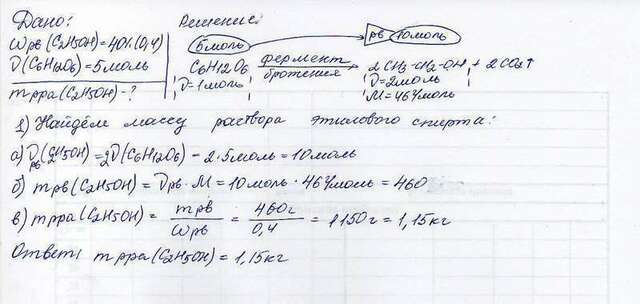 Дано:
Решение:
ωрв(C₂H₅OH)=40%(0,4)
ν(C₆H₁₂O₆)=5моль
mрра(C₂H₅OH)-?
5моль
рв 10моль
C₆H₁₂O₆ фермент брожения 2CH₃-CH₂-OH + 2CO₂↑
ν=1моль
ν=2моль
M=46г/моль
1) Найдём массу раствора этилового спирта:
а) νрв(C₂H₅OH)=2ν(C₆H₁₂O₆) - 2·5моль=10моль
б) mрв(C₂H₅OH)=νрв·M=10моль·46г/моль=460
в) mрра(C₂H₅OH)= mрв/ωрв = 460г/0,4 = 1150г=1,15кг
Ответ: mрра(C₂H₅OH)=1,15кг